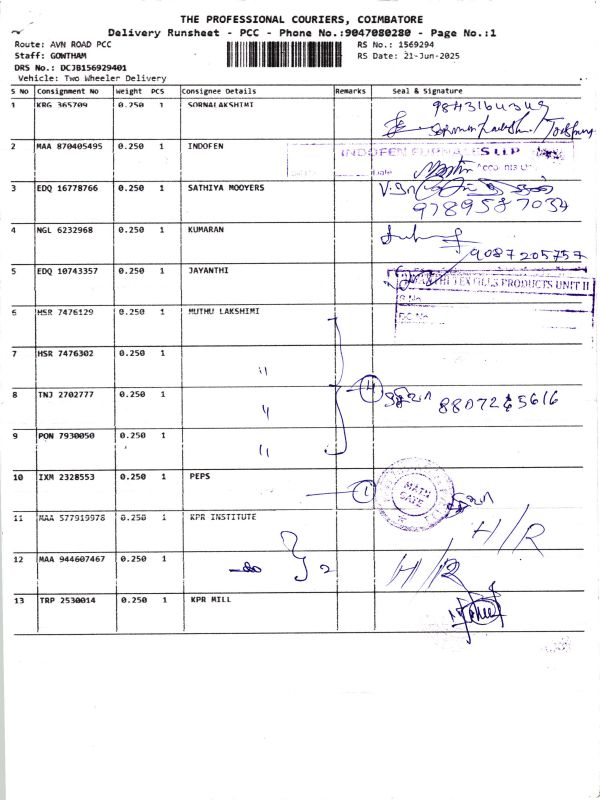 THE PROFESSIONAL COURIERS, COIMBATORE
Delivery Runsheet - PCC - Phone No.:9047080280 - Page No.:1
Route: AVN ROAD PCC
RS No.: 1569294
Staff: GOWTHAM
RS Date: 21-Jun-2025
DRS No.: DCJB156929401
Vehicle: Two Wheeler Delivery
S No Consignment No Weight PCS Consignee Details Remarks Seal & Signature
1 KRG 365709 0.250 1 SORNALAKSHIMI
2 MAA 870405495 0.250 1 INDOFEN INDOFEN LLP
3 EDQ 16778766 0.250 1 SATHIYA MOOYERS
9789587034
4 NGL 6232968 0.250 1 KUMARAN
9087205757
5 EDQ 10743357 0.250 1 JAYANTHI
TEXTILES PRODUCTS UNIT II
6 HSR 7476129 0.250 1 MUTHU LAKSHIMI
7 HSR 7476302 0.250 1 "
8 TNJ 2702777 0.250 1 " 4
9 PON 7930050 0.250 1 "
10 IXM 2328553 0.250 1 PEPS 1 MAIN GATE
11 MAA 577919978 0.250 1 KPR INSTITUTE H/R
12 MAA 944607467 0.250 1 2 H/R
13 TRP 2530014 0.250 1 KPR MILL